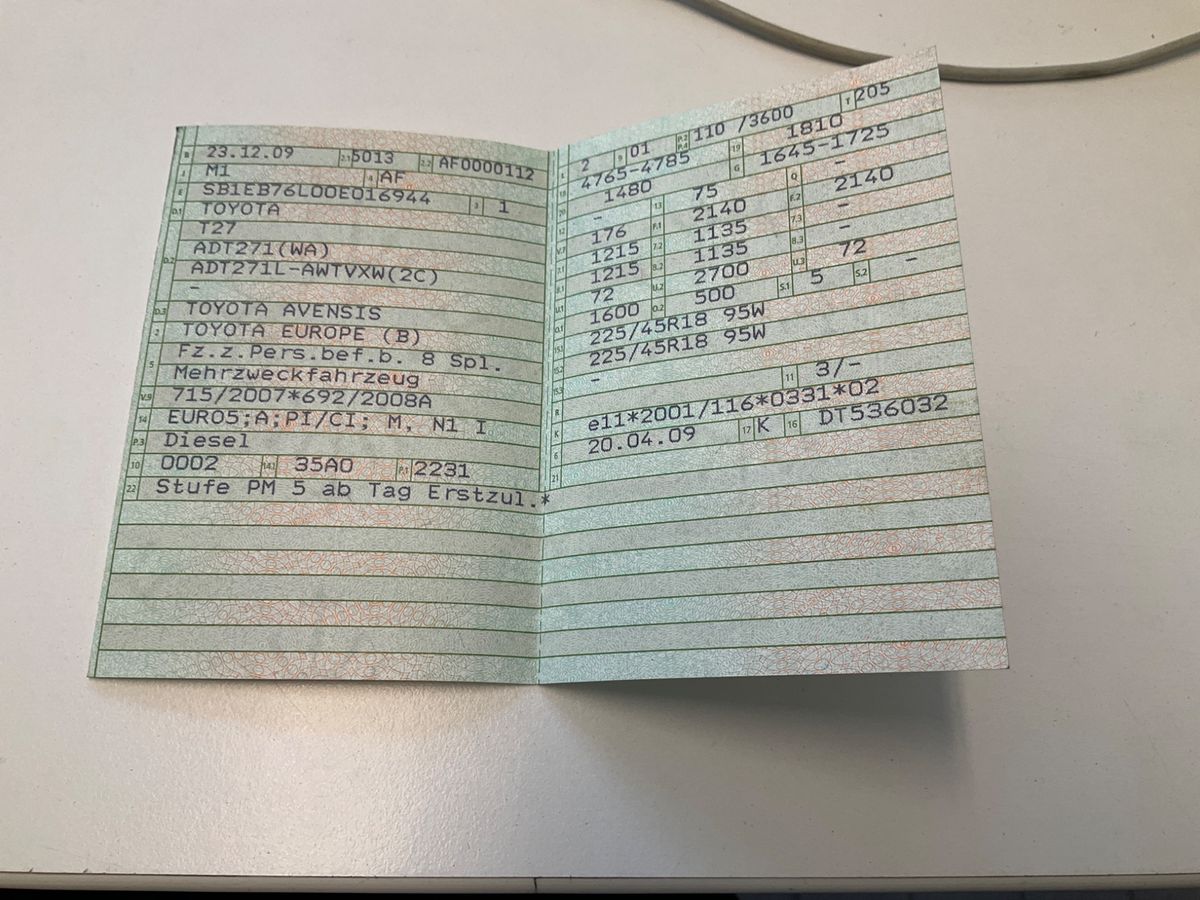 B 23.12.09 2.1 5013 2.2 AF0000112
J M1 4 AF
E SB1EB76L00E016944 3 1
D.1 TOYOTA
T27
D.2 ADT271(WA)
ADT271L-AWTVXW(2C)
-
D.3 TOYOTA AVENSIS
2 TOYOTA EUROPE (B)
5 Fz.z.Pers.bef.b. 8 Spl.
Mehrzweckfahrzeug
V.9 715/2007*692/2008A
14 EURO5;A;PI/CI; M, N1 I
P.3 Diesel
10 0002 14.1 35A0 P.1 2231
22 Stufe PM 5 ab Tag Erstzul.*
L 2 9 01 P.2 P.4 110 /3600 T 205
18 4765-4785 19 1810
20 1480 G 1645-1725
12 - 13 75 Q -
V.7 176 F.1 2140 F.2 2140
7.1 1215 7.2 1135 7.3 -
8.1 1215 8.2 1135 8.3 -
U.1 72 U.2 2700 U.3 72
O.1 1600 O.2 500 S.1 5 S.2 -
15.1 225/45R18 95W
15.2 225/45R18 95W
15.3 -
R 11 3/-
K e11*2001/116*0331*02
6 20.04.09 17 K 16 DT536032
21